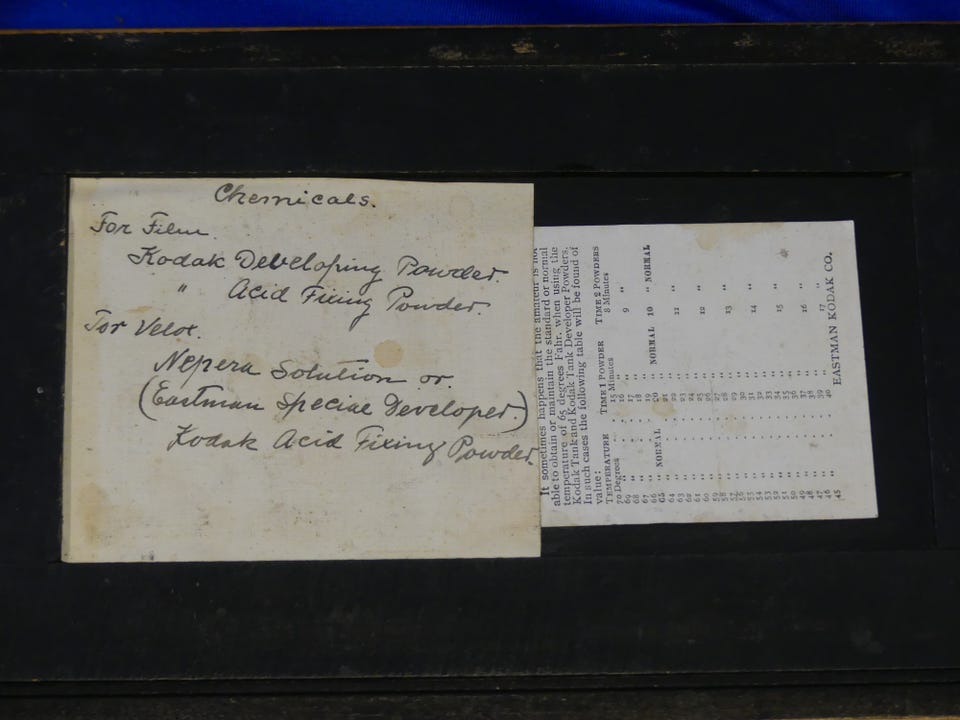 Chemicals.
For Film.
Kodak Developing Powder.
" Acid Fixing Powder.
For Velox.
Nepera Solution or.
(Eastman Special Developer.)
Kodak Acid Fixing Powder.
It sometimes happens that the amateur is not
able to obtain or maintain the standard or normal
temperature of 65 degrees Fahr. when using the
Kodak Tank and Kodak Tank Developer Powders.
In such cases the following table will be found of
value:
TEMPERATURE TIME 1 POWDER TIME 2 POWDERS
70 Degrees 15 Minutes 8 Minutes
69 " 16 "
68 " 17 " 9 "
67 " 18 "
66 " 19 "
65 " NORMAL 20 " NORMAL 10 " NORMAL
64 " 21 "
63 " 22 "
62 " 23 " 11 "
61 " 24 "
60 " 25 " 12 "
59 " 26 "
58 " 27 "
57 " 28 " 13 "
56 " 29 "
55 " 30 "
54 " 31 " 14 "
53 " 32 "
52 " 33 "
51 " 34 " 15 "
50 " 35 "
49 " 36 "
48 " 37 " 16 "
47 " 38 "
46 " 39 "
45 " 40 " 17 "
EASTMAN KODAK CO.